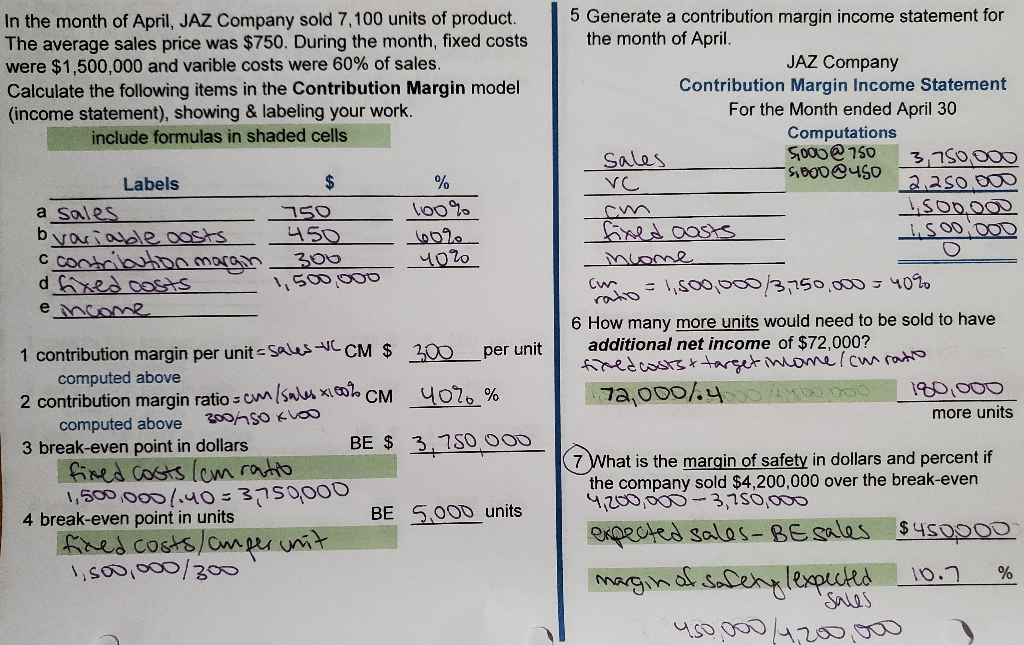 In the month of April, JAZ Company sold 7,100 units of product.
The average sales price was $750. During the month, fixed costs
were $1,500,000 and varible costs were 60% of sales.
Calculate the following items in the Contribution Margin model
(income statement), showing & labeling your work.
include formulas in shaded cells
Labels $ %
a sales 750 100%
b variable costs 450 60%
c contribution margin 300 40%
d fixed costs 1,500,000
e income
1 contribution margin per unit = sales - VC CM $ 300 per unit
computed above
2 contribution margin ratio = cm/sales x100% CM 40% %
computed above 300/750 x 100
3 break-even point in dollars BE $ 3,750,000
fixed costs / cm ratio
1,500,000 / .40 = 3,750,000
4 break-even point in units BE 5,000 units
fixed costs / cm per unit
1,500,000 / 300
5 Generate a contribution margin income statement for
the month of April.
JAZ Company
Contribution Margin Income Statement
For the Month ended April 30
Computations
Sales 5,000 @ 750 3,750,000
VC 5,000 @ 450 2,250,000
cm 1,500,000
fixed costs 1,500,000
income 0
cm ratio = 1,500,000/3,750,000 = 40%
6 How many more units would need to be sold to have
additional net income of $72,000?
fixed costs + target income / cm ratio
72,000/.4 180,000
more units
7 What is the margin of safety in dollars and percent if
the company sold $4,200,000 over the break-even
4,200,000 - 3,750,000
expected sales - BE sales $450,000
margin of safety / expected sales 10.7 %
450,000 / 4,200,000